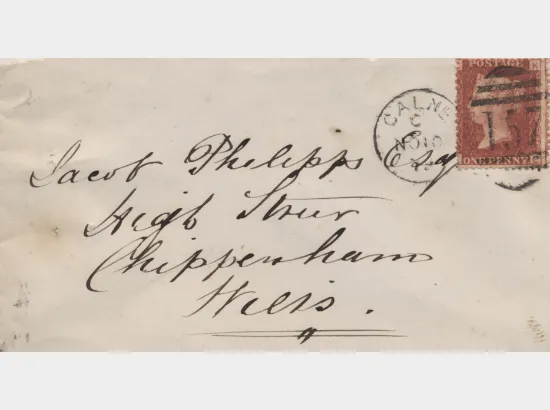 POSTAGE
CALNE
C
NO 10
ONE PENNY
Jacob Phelipps Esq
High Street
Chippenham
Wilts.